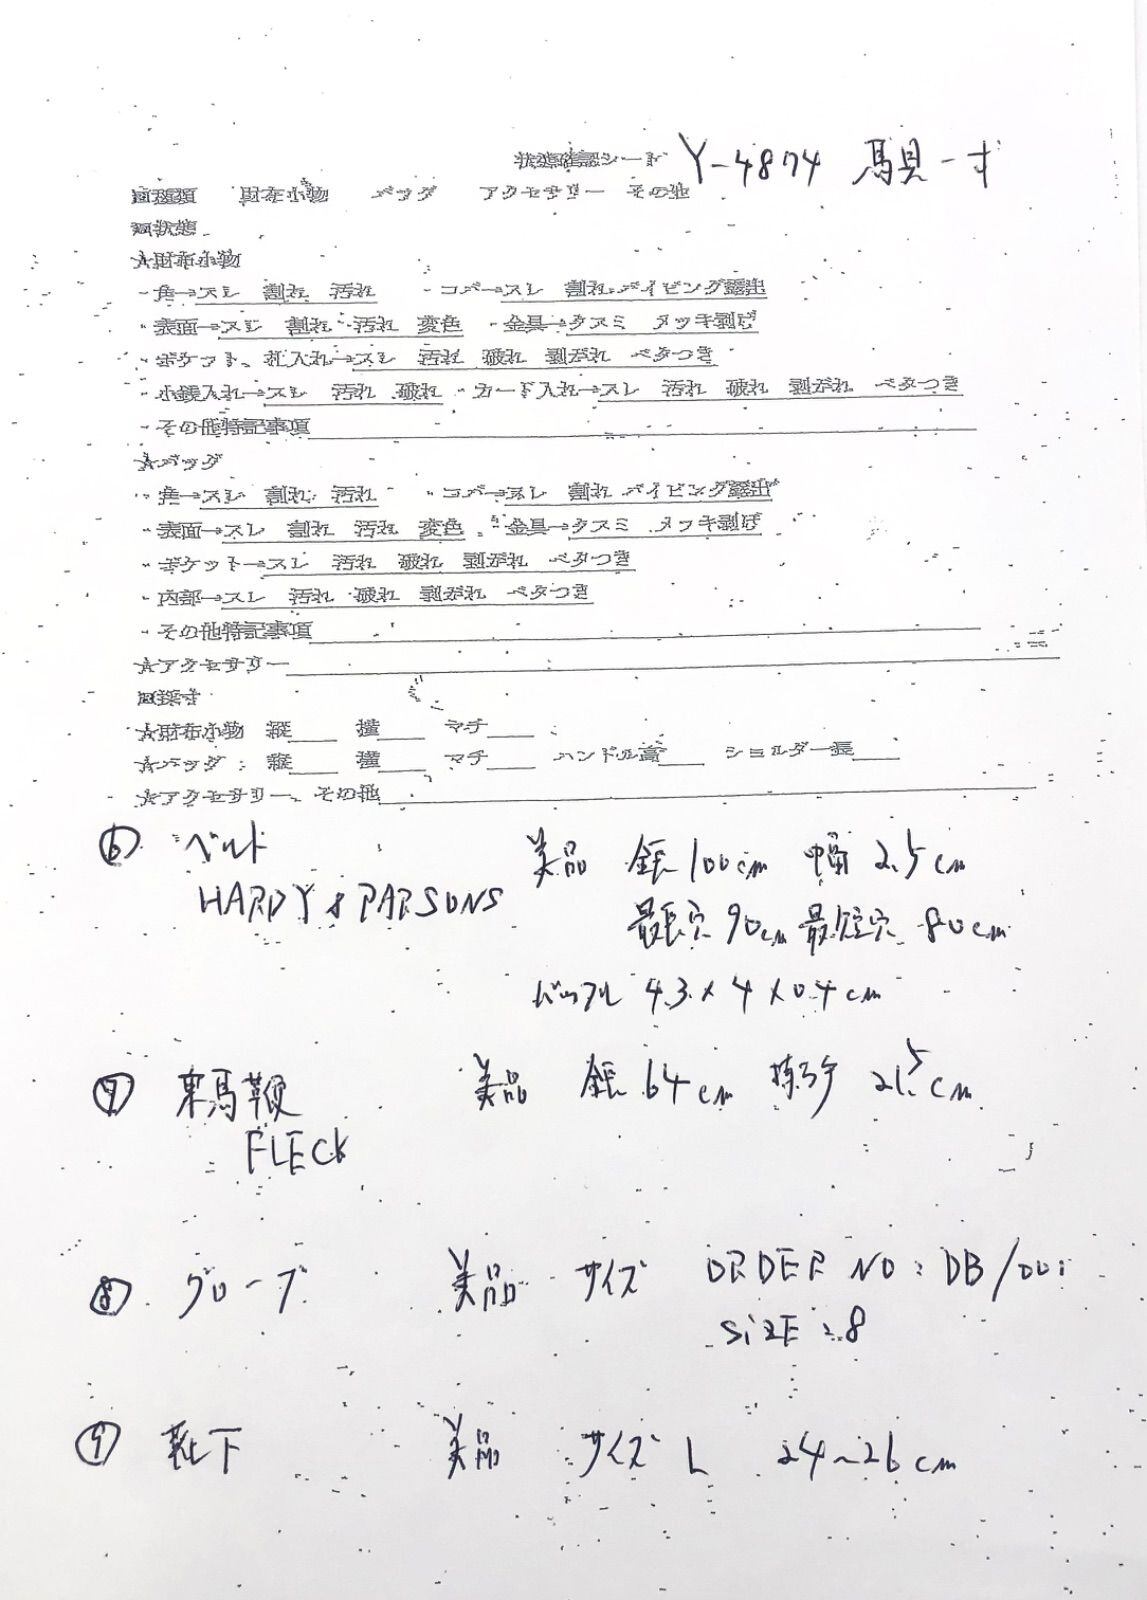 状態確認シート Y-4874 馬具一才
回種類 財布小物 バッグ アクセサリー その他
回状態
★財布小物
・角→スレ 割れ 汚れ ・コバ→スレ 割れ パイピング露出
・表面→スレ 割れ 汚れ 変色 ・金具→クスミ メッキ剥げ
・ポケット、札入れ→スレ 汚れ 破れ 剥がれ ベタつき
・小銭入れ→スレ 汚れ 破れ ・カード入れ→スレ 汚れ 破れ 剥がれ ベタつき
・その他特記事項
★バッグ
・角→スレ 割れ 汚れ ・コバ→スレ 割れ パイピング露出
・表面→スレ 割れ 汚れ 変色 ・金具→クスミ メッキ剥げ
・ポケット→スレ 汚れ 破れ 剥がれ ベタつき
・内部→スレ 汚れ 破れ 剥がれ ベタつき
・その他特記事項
★アクセサリー
回採寸
★財布小物 縦 横 マチ
★バッグ: 縦 横 マチ ハンドル高 ショルダー長
★アクセサリー、その他
⑥ ベルト 美品 全長100cm 幅 2.5cm
HARDY & PARSONS
最長穴 90cm 最短穴 80cm
バックル 4.3×4×0.4cm
⑦ 乗馬鞭 美品 全長64cm 持ち手 21.5cm
FLECK
⑧ グローブ 美品 サイズ ORDER NO: DB/001
SIZE:8
⑨ 靴下 美品 サイズ L 24~26cm